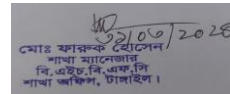 ৩১/০৩/২০২৪
মোঃ ফারুক হোসেন
শাখা ম্যানেজার
বি,এইচ,বি,এফ,সি
শাখা অফিস, টাঙ্গাইল।